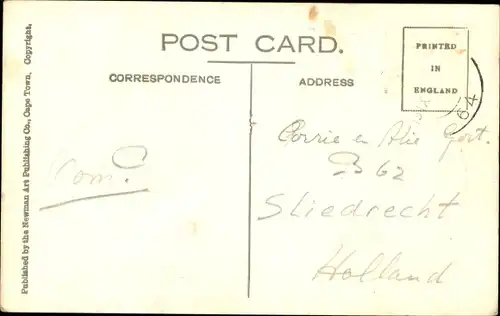 POST CARD.
CORRESPONDENCE
ADDRESS
PRINTED
IN
ENGLAND
64
Corrie en Alie Gort.
B 62
Sliedrecht
Holland
Published by the Newman Art Publishing Co., Cape Town, Copyright.